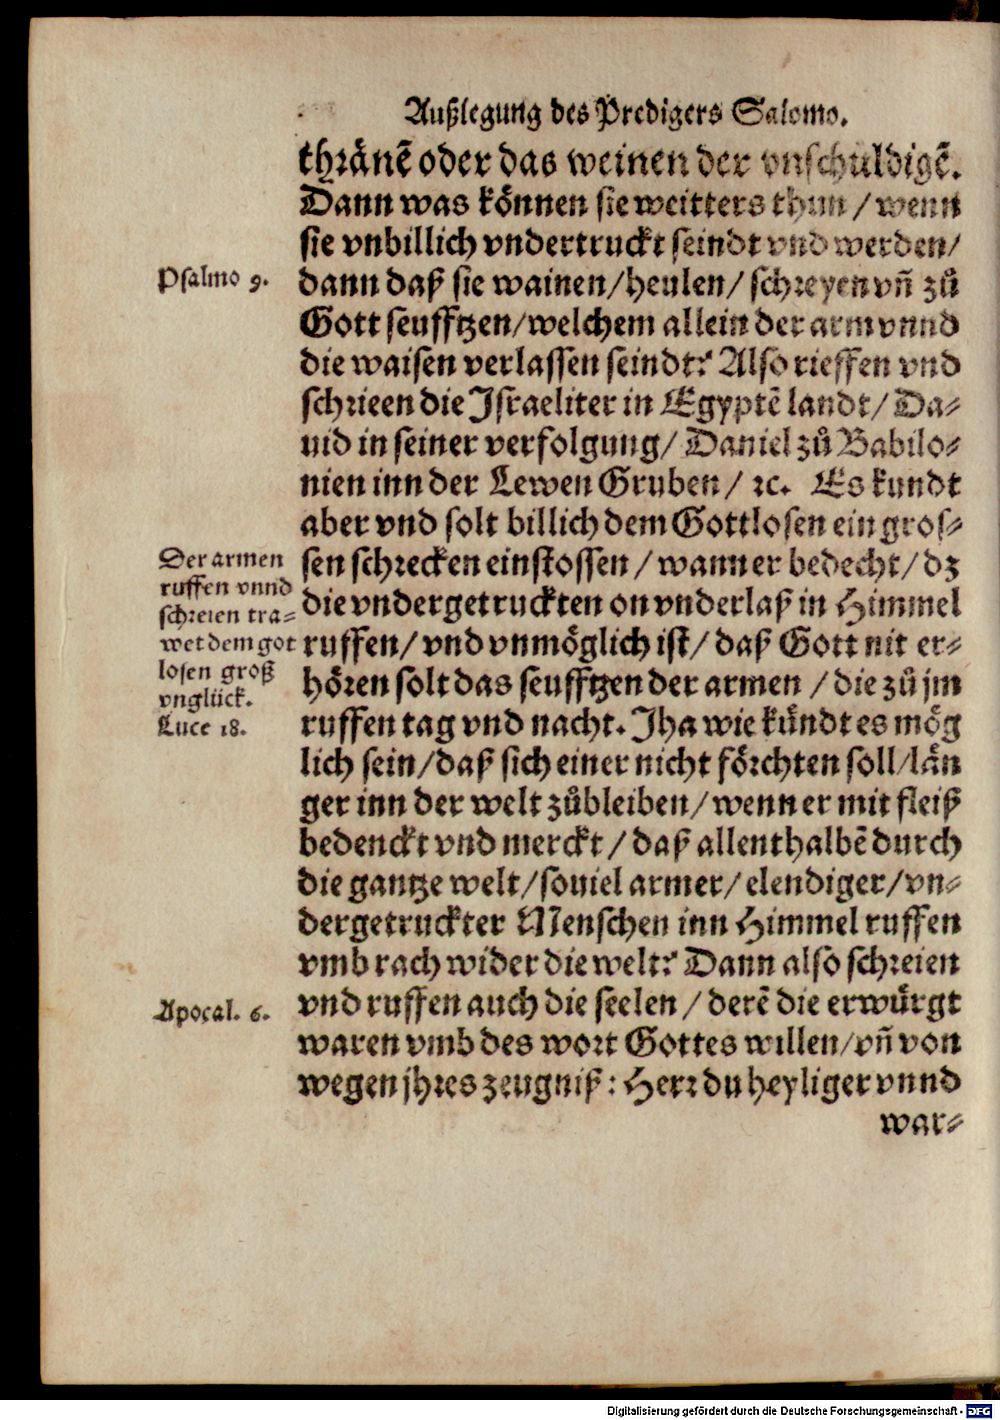 Außlegung des Predigers Salomo.
thränē oder das weinen der vnschuldigē.
Dann was können sie weitters thun / wenn
sie vnbillich vndertruckt seindt vnd werden/
Psalmo 9.
dann daß sie wainen/heulen/ schreyen vñ zů
Gott seufftzen/welchem allein der arm vnnd
die waisen verlassen seindt? Also rieffen vnd
schrieen die Israeliter in Egyptē landt/ Da-
uid in seiner verfolgung/ Daniel zů Babilo-
nien inn der Lewen Gruben/ ꝛc. Es kundt
aber vnd solt billich dem Gottlosen ein gros-
Der armen
ruffen vnnd
schreien tra-
wet dem got
losen groß
vnglück.
Luce 18.
sen schrecken einstossen / wann er bedecht/ dz
die vndergetruckten on vnderlaß in Himmel
ruffen/ vnd vnmöglich ist/ daß Gott nit er-
hören solt das seufftzen der armen / die zů jm
ruffen tag vnd nacht. Jha wie kündt es mög
lich sein/daß sich einer nicht förchten soll/län
ger inn der welt zůbleiben/wenn er mit fleiß
bedenckt vnd merckt / daß allenthalbē durch
die gantze welt/souiel armer/ elendiger/vn-
dergetruckter Menschen inn Himmel ruffen
vmb rach wider die welt? Dann also schreien
Apocal. 6.
vnd ruffen auch die seelen / derē die erwürgt
waren vmb des wort Gottes willen/vñ von
wegen jhres zeugniß : Herr du heyliger vnnd
war-
Digitalisierung gefördert durch die Deutsche Forschungsgemeinschaft - DFG